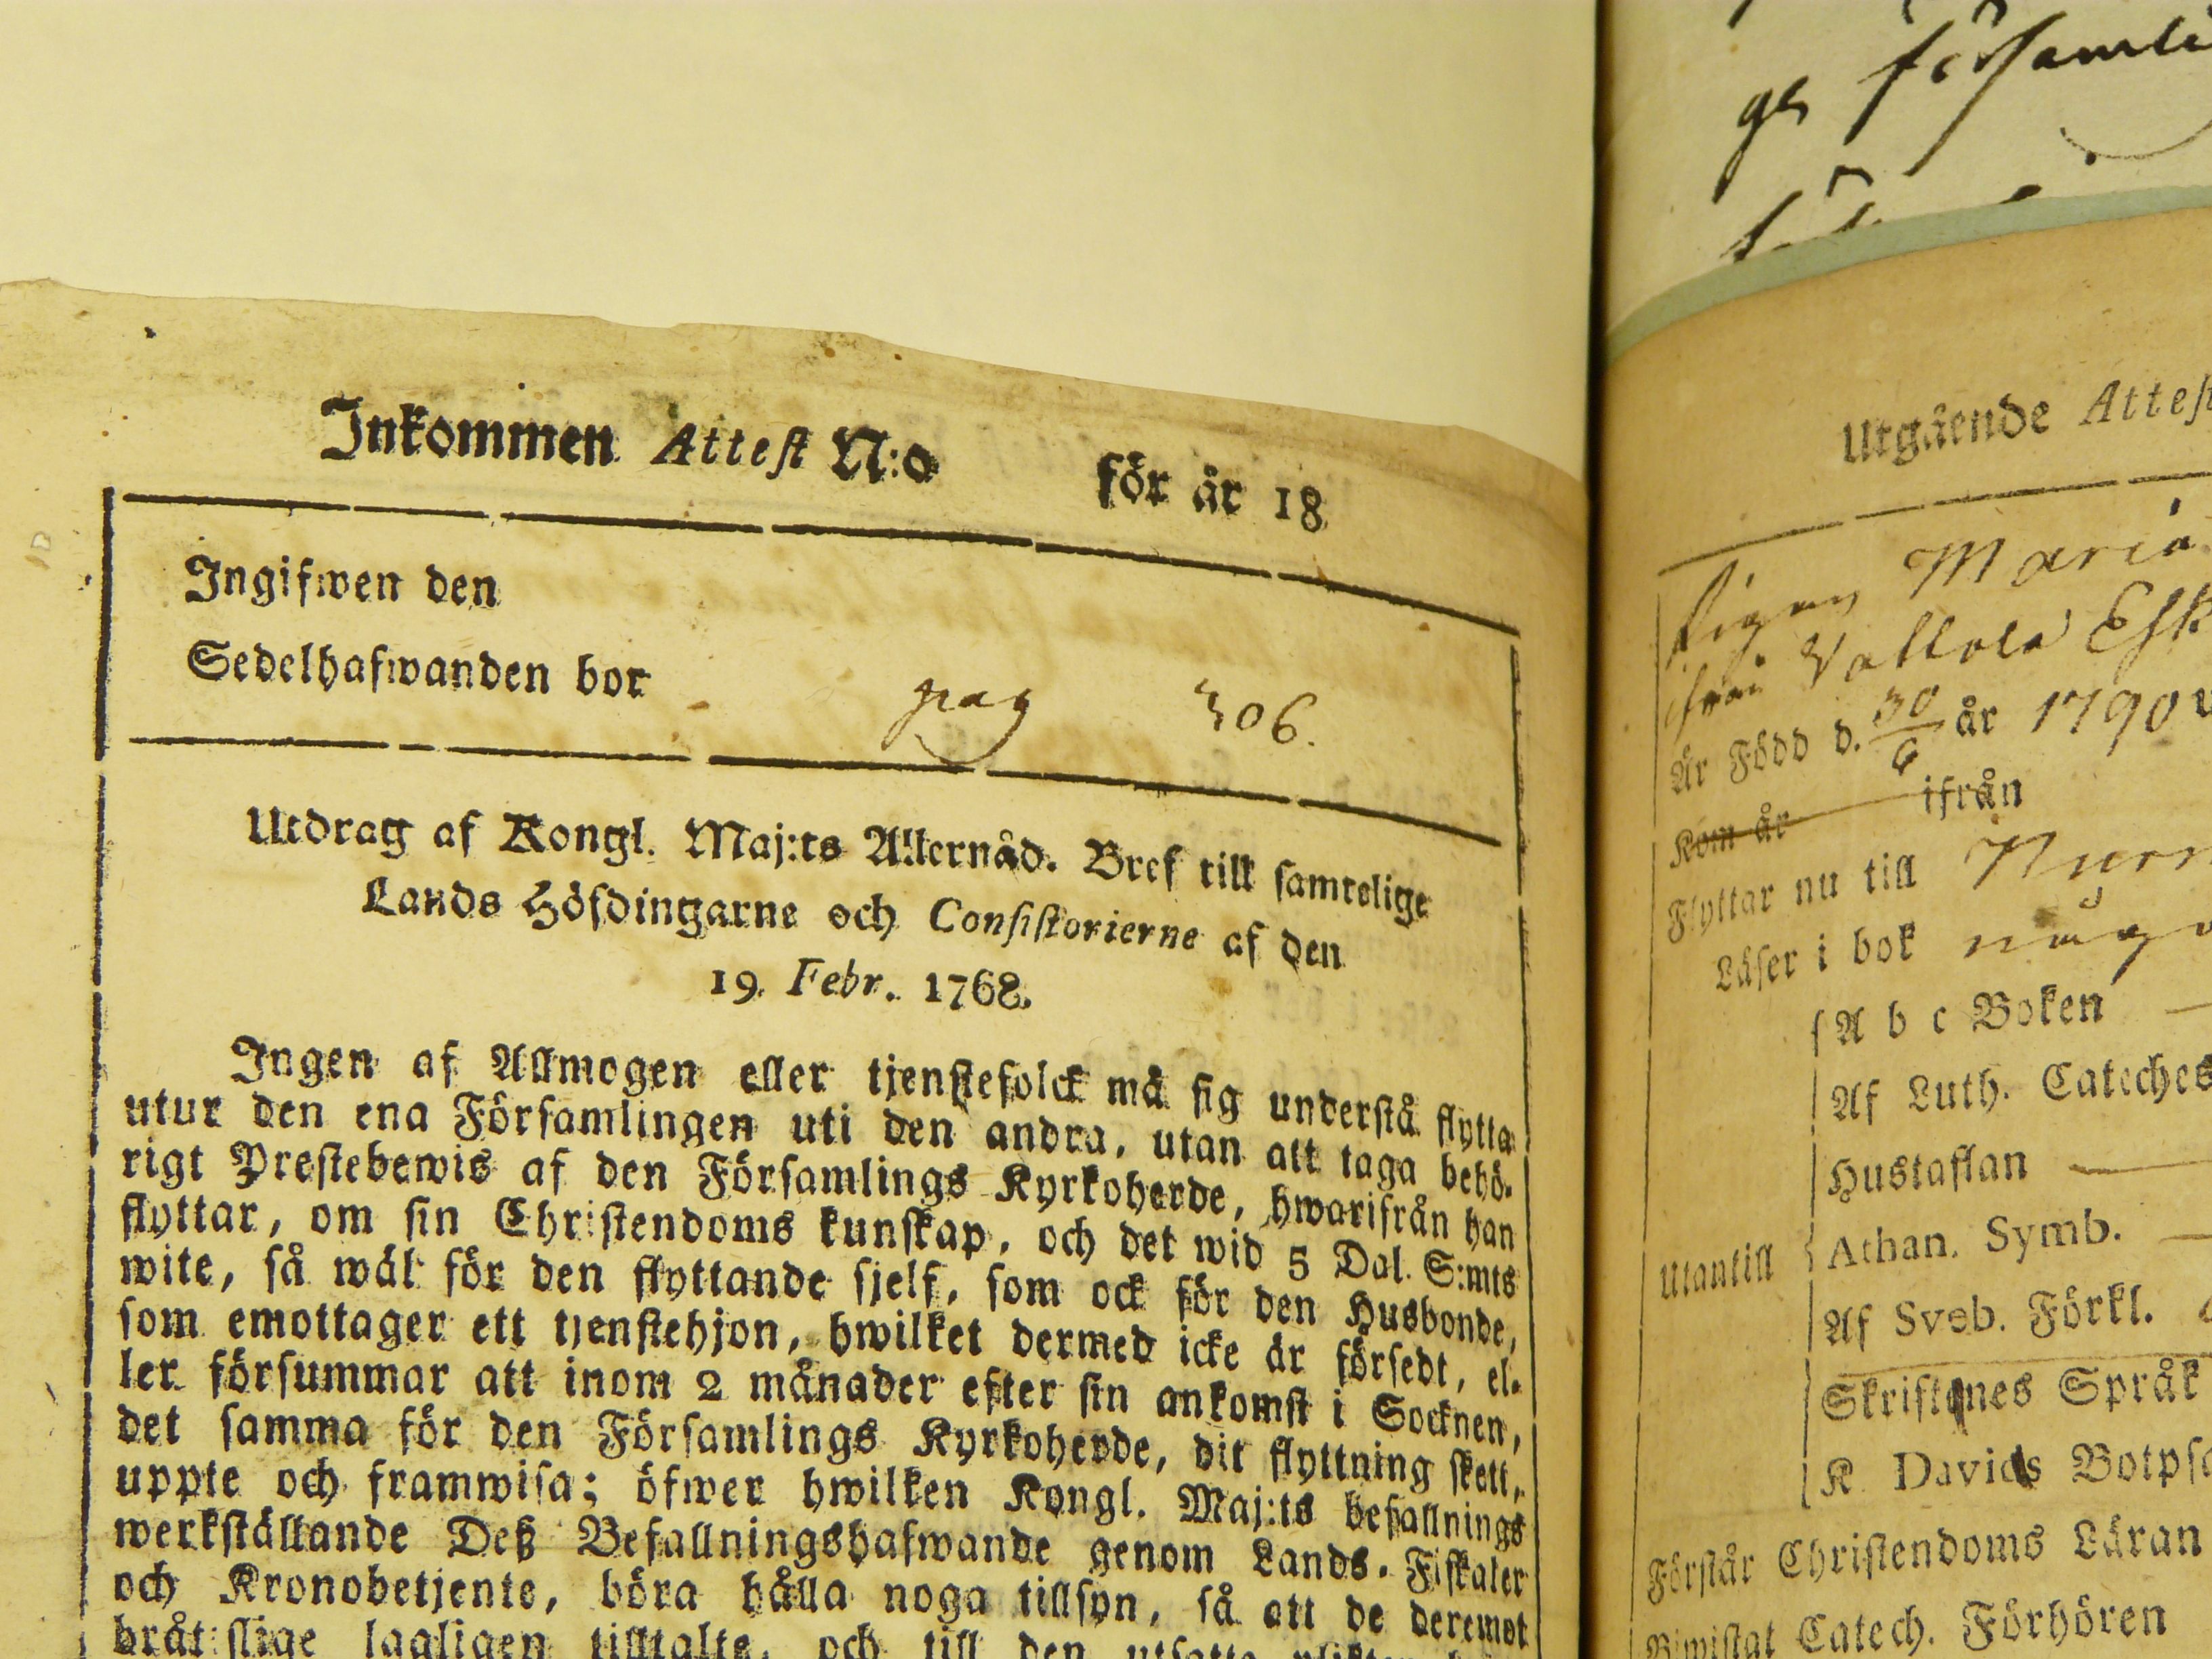 Inkommen Attest N:o för år 18
Ingifwen den
Sedelhafwanden bor pag 306.
Utdrag af Kongl. Maj:ts Allernåd. Bref till samtelige
Lands Höfdingarne och Consistorierne af den
19. Febr. 1768.
Ingen af Allmogen eller tjenstefolck må sig understå flytta
utur den ena Församlingen uti den andra, utan att taga behö-
rigt Prestebewis af den Församlings Kyrkoherde, hwarifrån han
flyttar, om sin Christendoms kunskap, och det wid 5 Dal. S:mts
wite, så wäl för den flyttande sjelf, som ock för den Husbonde,
som emottager ett tjenstehjon, hwilket dermed icke är försedt, el-
ler försummar att inom 2 månader efter sin ankomst i Socknen,
det samma för den Församlings Kyrkoherde, dit flyttning skett,
uppte och framwisa; öfwer hwilken Kongl. Maj:ts befallnings
werkställande Deß Befallningshafwande genom Lands-Fiskaler
och Kronobetjente, böra hålla noga tillsyn, så att de deremot
bråtslige lagligen tilltalte, och till den utsatte
ge församli
Utgående Attest
Pigan Maria
ifrån Vallola
Är Född d. 30/6 år 1790
Kom år ifrån
Flyttar nu till
Läser i bok
A b c Boken
Af Luth. Cateches
Hustaflan
Utantill Athan. Symb.
Af Sveb. Förkl.
Skriftenes Språk
K. Davids
Förstår Christendoms Läran
Biwistat Catech. Förhören